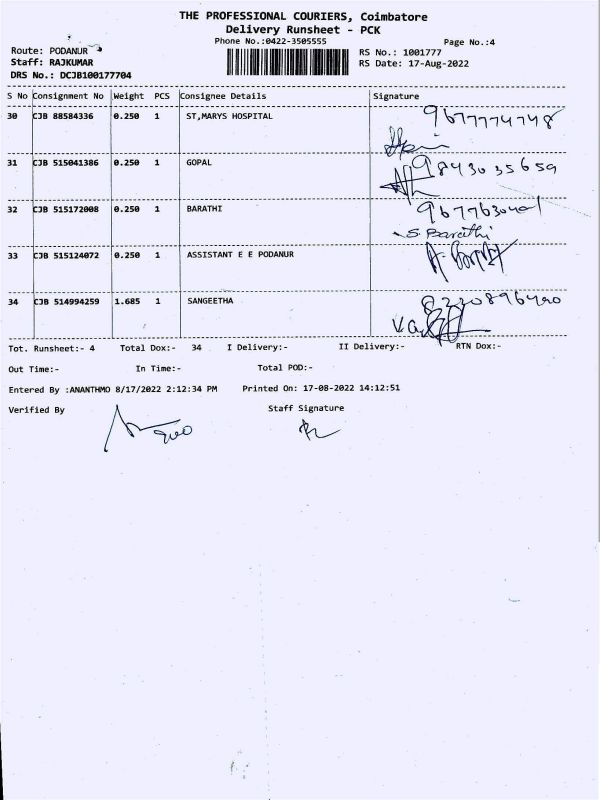 THE PROFESSIONAL COURIERS, Coimbatore
Delivery Runsheet - PCK
Phone No.:0422-3505555 Page No.:4
Route: PODANUR RS No.: 1001777
Staff: RAJKUMAR RS Date: 17-Aug-2022
DRS No.: DCJB100177704
S No Consignment No Weight PCS Consignee Details Signature
30 CJB 88584336 0.250 1 ST,MARYS HOSPITAL 9677774748
31 CJB 515041386 0.250 1 GOPAL 9843035659
32 CJB 515172008 0.250 1 BARATHI
S. Barathi
33 CJB 515124072 0.250 1 ASSISTANT E E PODANUR
34 CJB 514994259 1.685 1 SANGEETHA
Tot. Runsheet:- 4 Total Dox:- 34 I Delivery:- II Delivery:- RTN Dox:-
Out Time:- In Time:- Total POD:-
Entered By :ANANTHMO 8/17/2022 2:12:34 PM Printed On: 17-08-2022 14:12:51
Verified By Staff Signature